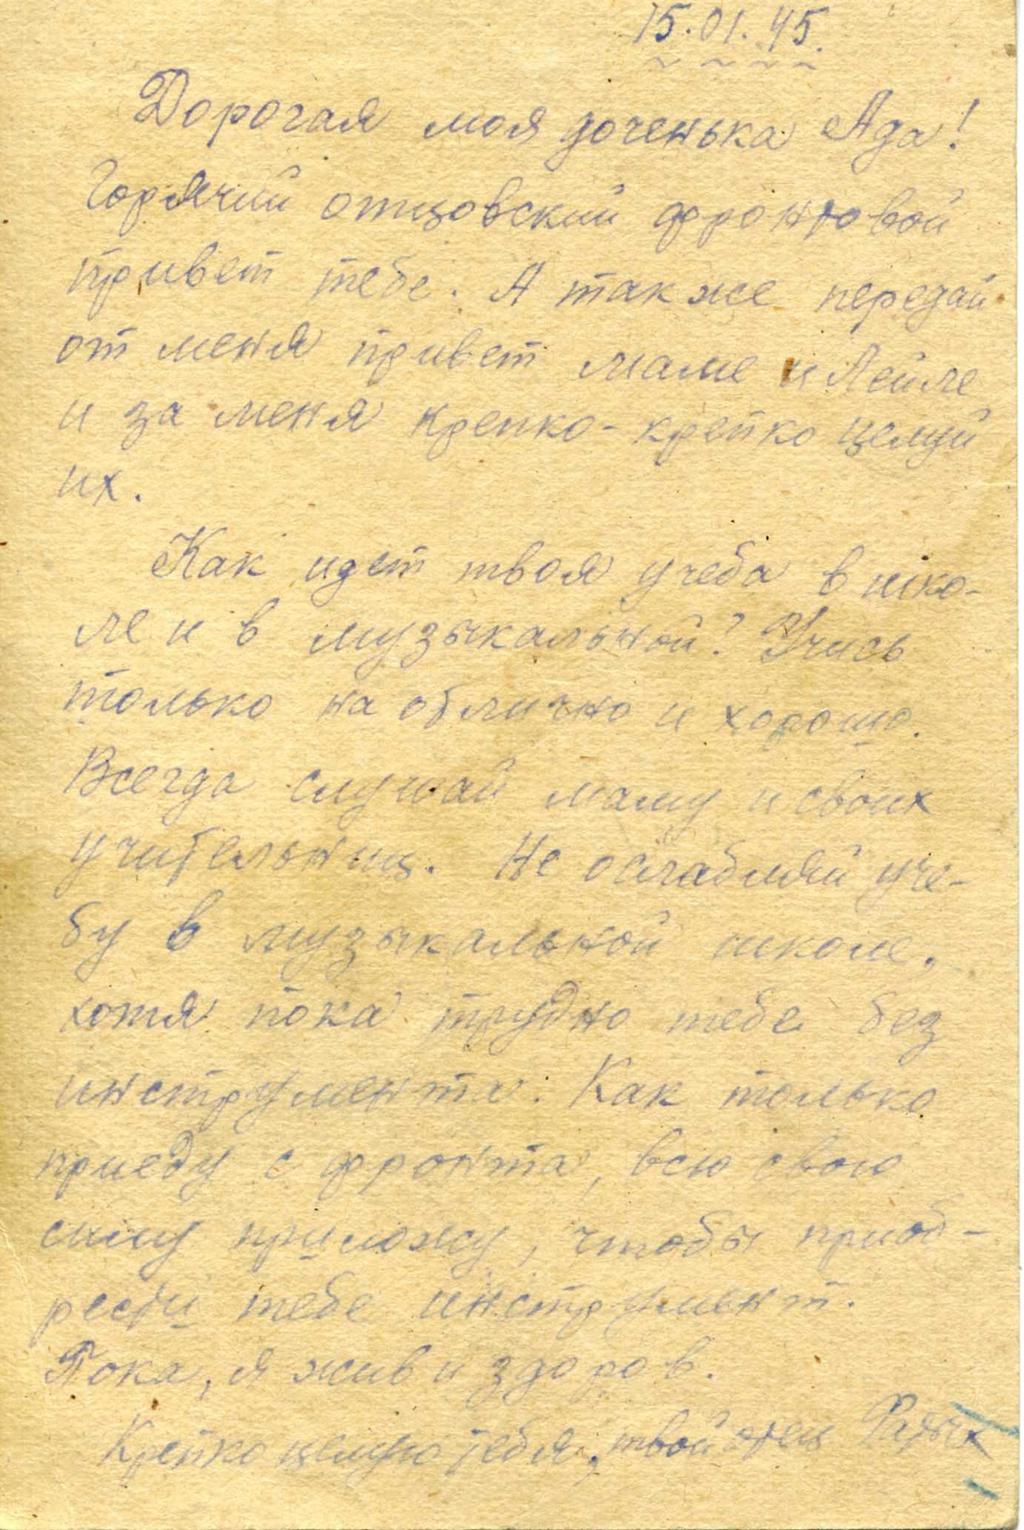 15.01.45.
Дорогая моя доченька Ада!
Горячий отцовский фронтовой
привет тебе. А также передай
от меня привет маме и Лейле
и за меня крепко-крепко целуй
их.
Как идет твоя учеба в шко-
ле и в музыкальной? Учись
только на отлично и хорошо.
Всегда слушай маму и своих
учительниц. Не ослабляй уче-
бу в музыкальной школе,
хотя пока трудно тебе без
инструмента. Как только
приеду с фронта, всю свою
силу приложу, чтобы приоб-
рести тебе инструмент.
Пока, я жив и здоров.
Крепко целую тебя, твой отец Фатых